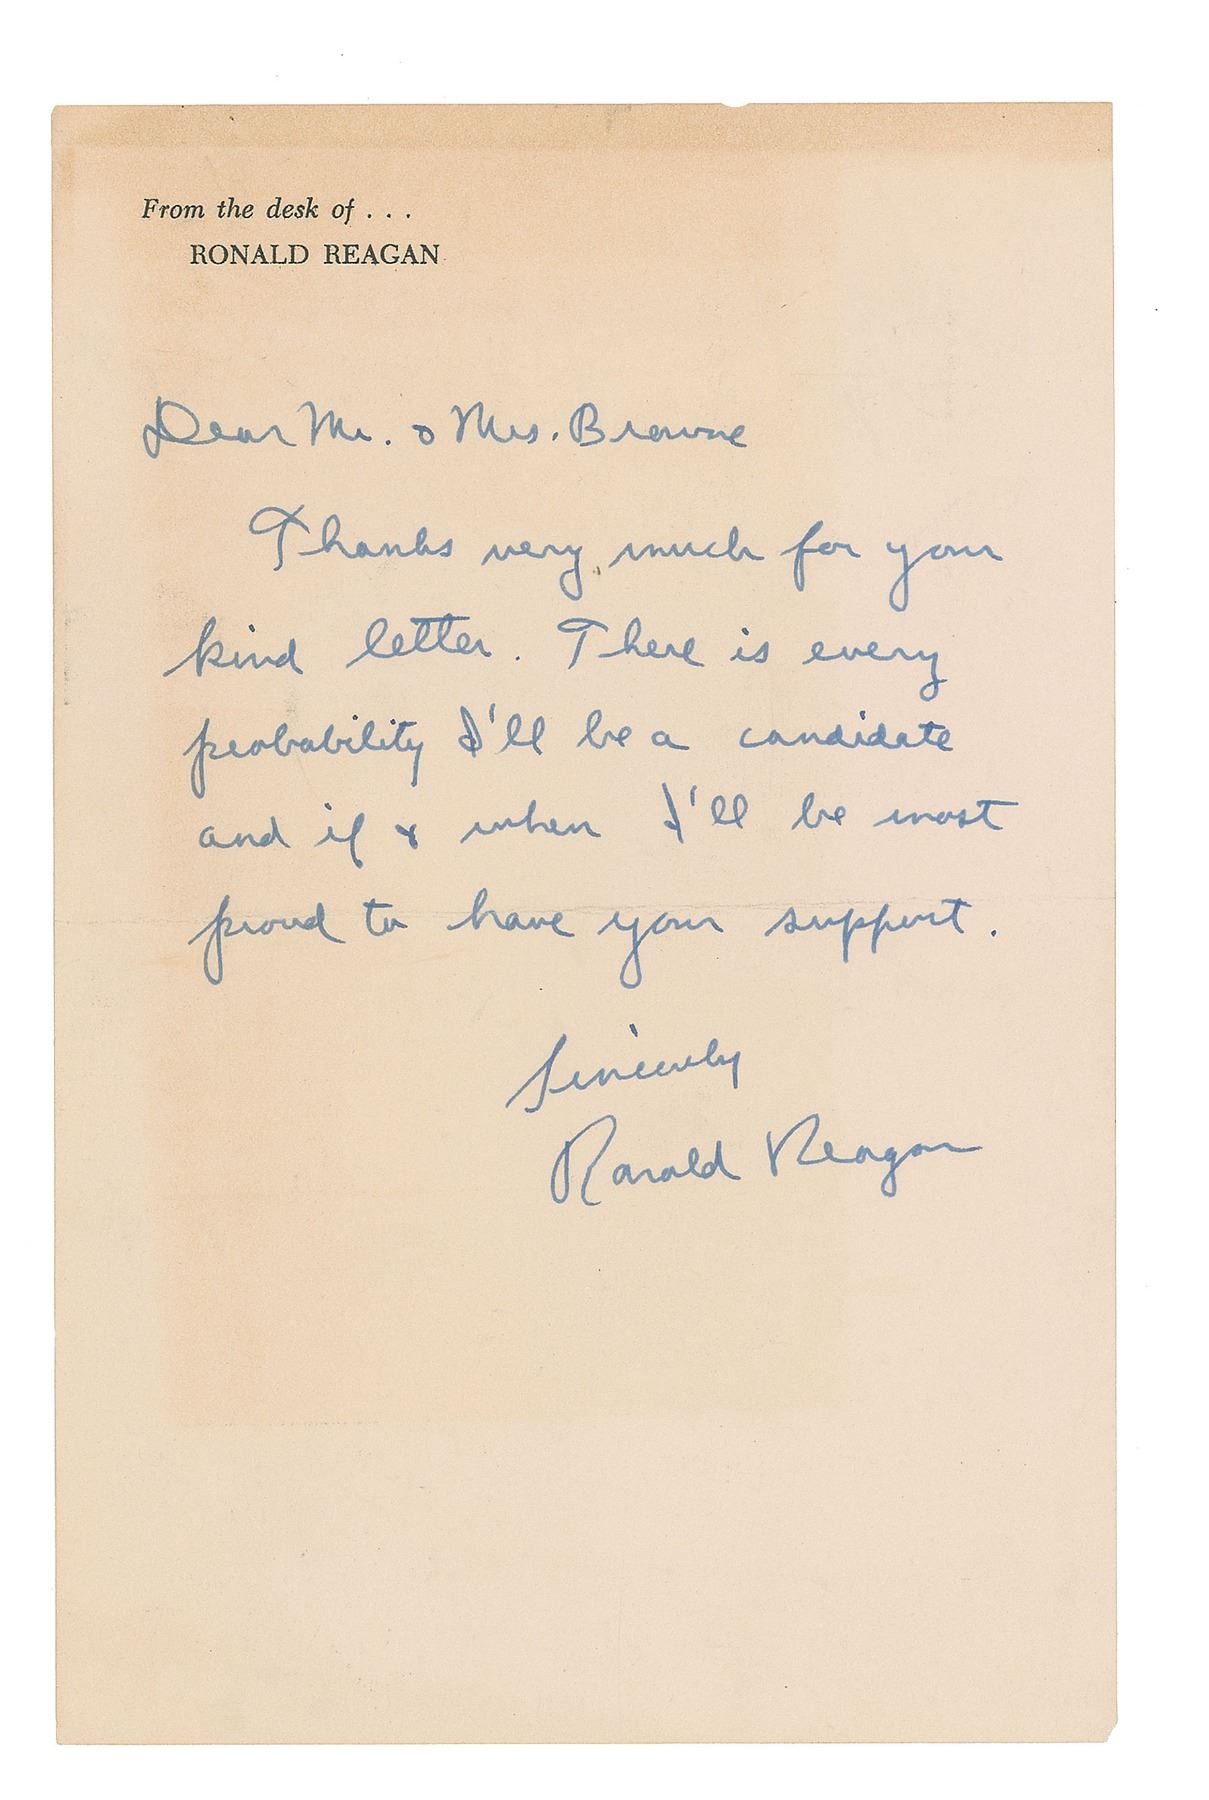 From the desk of . . .
RONALD REAGAN
Dear Mr. & Mrs. Browne
Thanks very much for your
kind letter. There is every
probability I'll be a candidate
and if & when I'll be most
proud to have your support.
Sincerely
Ronald Reagan